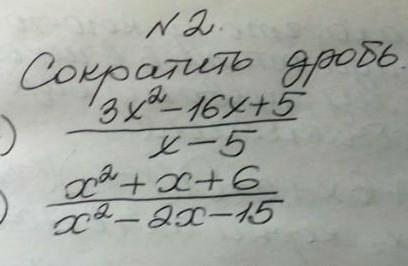 №2.
Сократить дробь.
) 3x²-16x+5
x-5
) x²+x+6
x²-2x-15